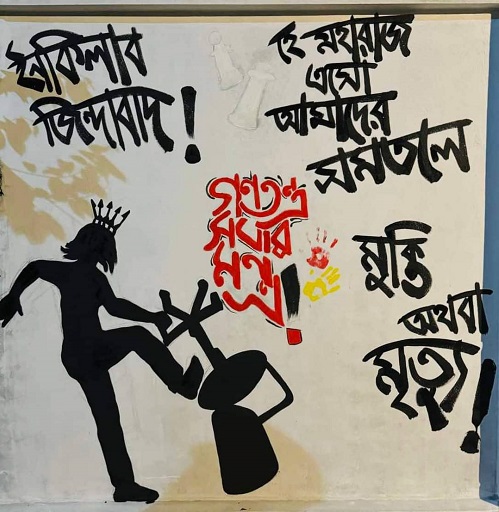 ইনকিলাব
জিন্দাবাদ!
হে মহারাজ
এসো
আমাদের
সমতলে
গণতন্ত্র
সবার
মুক্তি
অথবা
মৃত্যু!